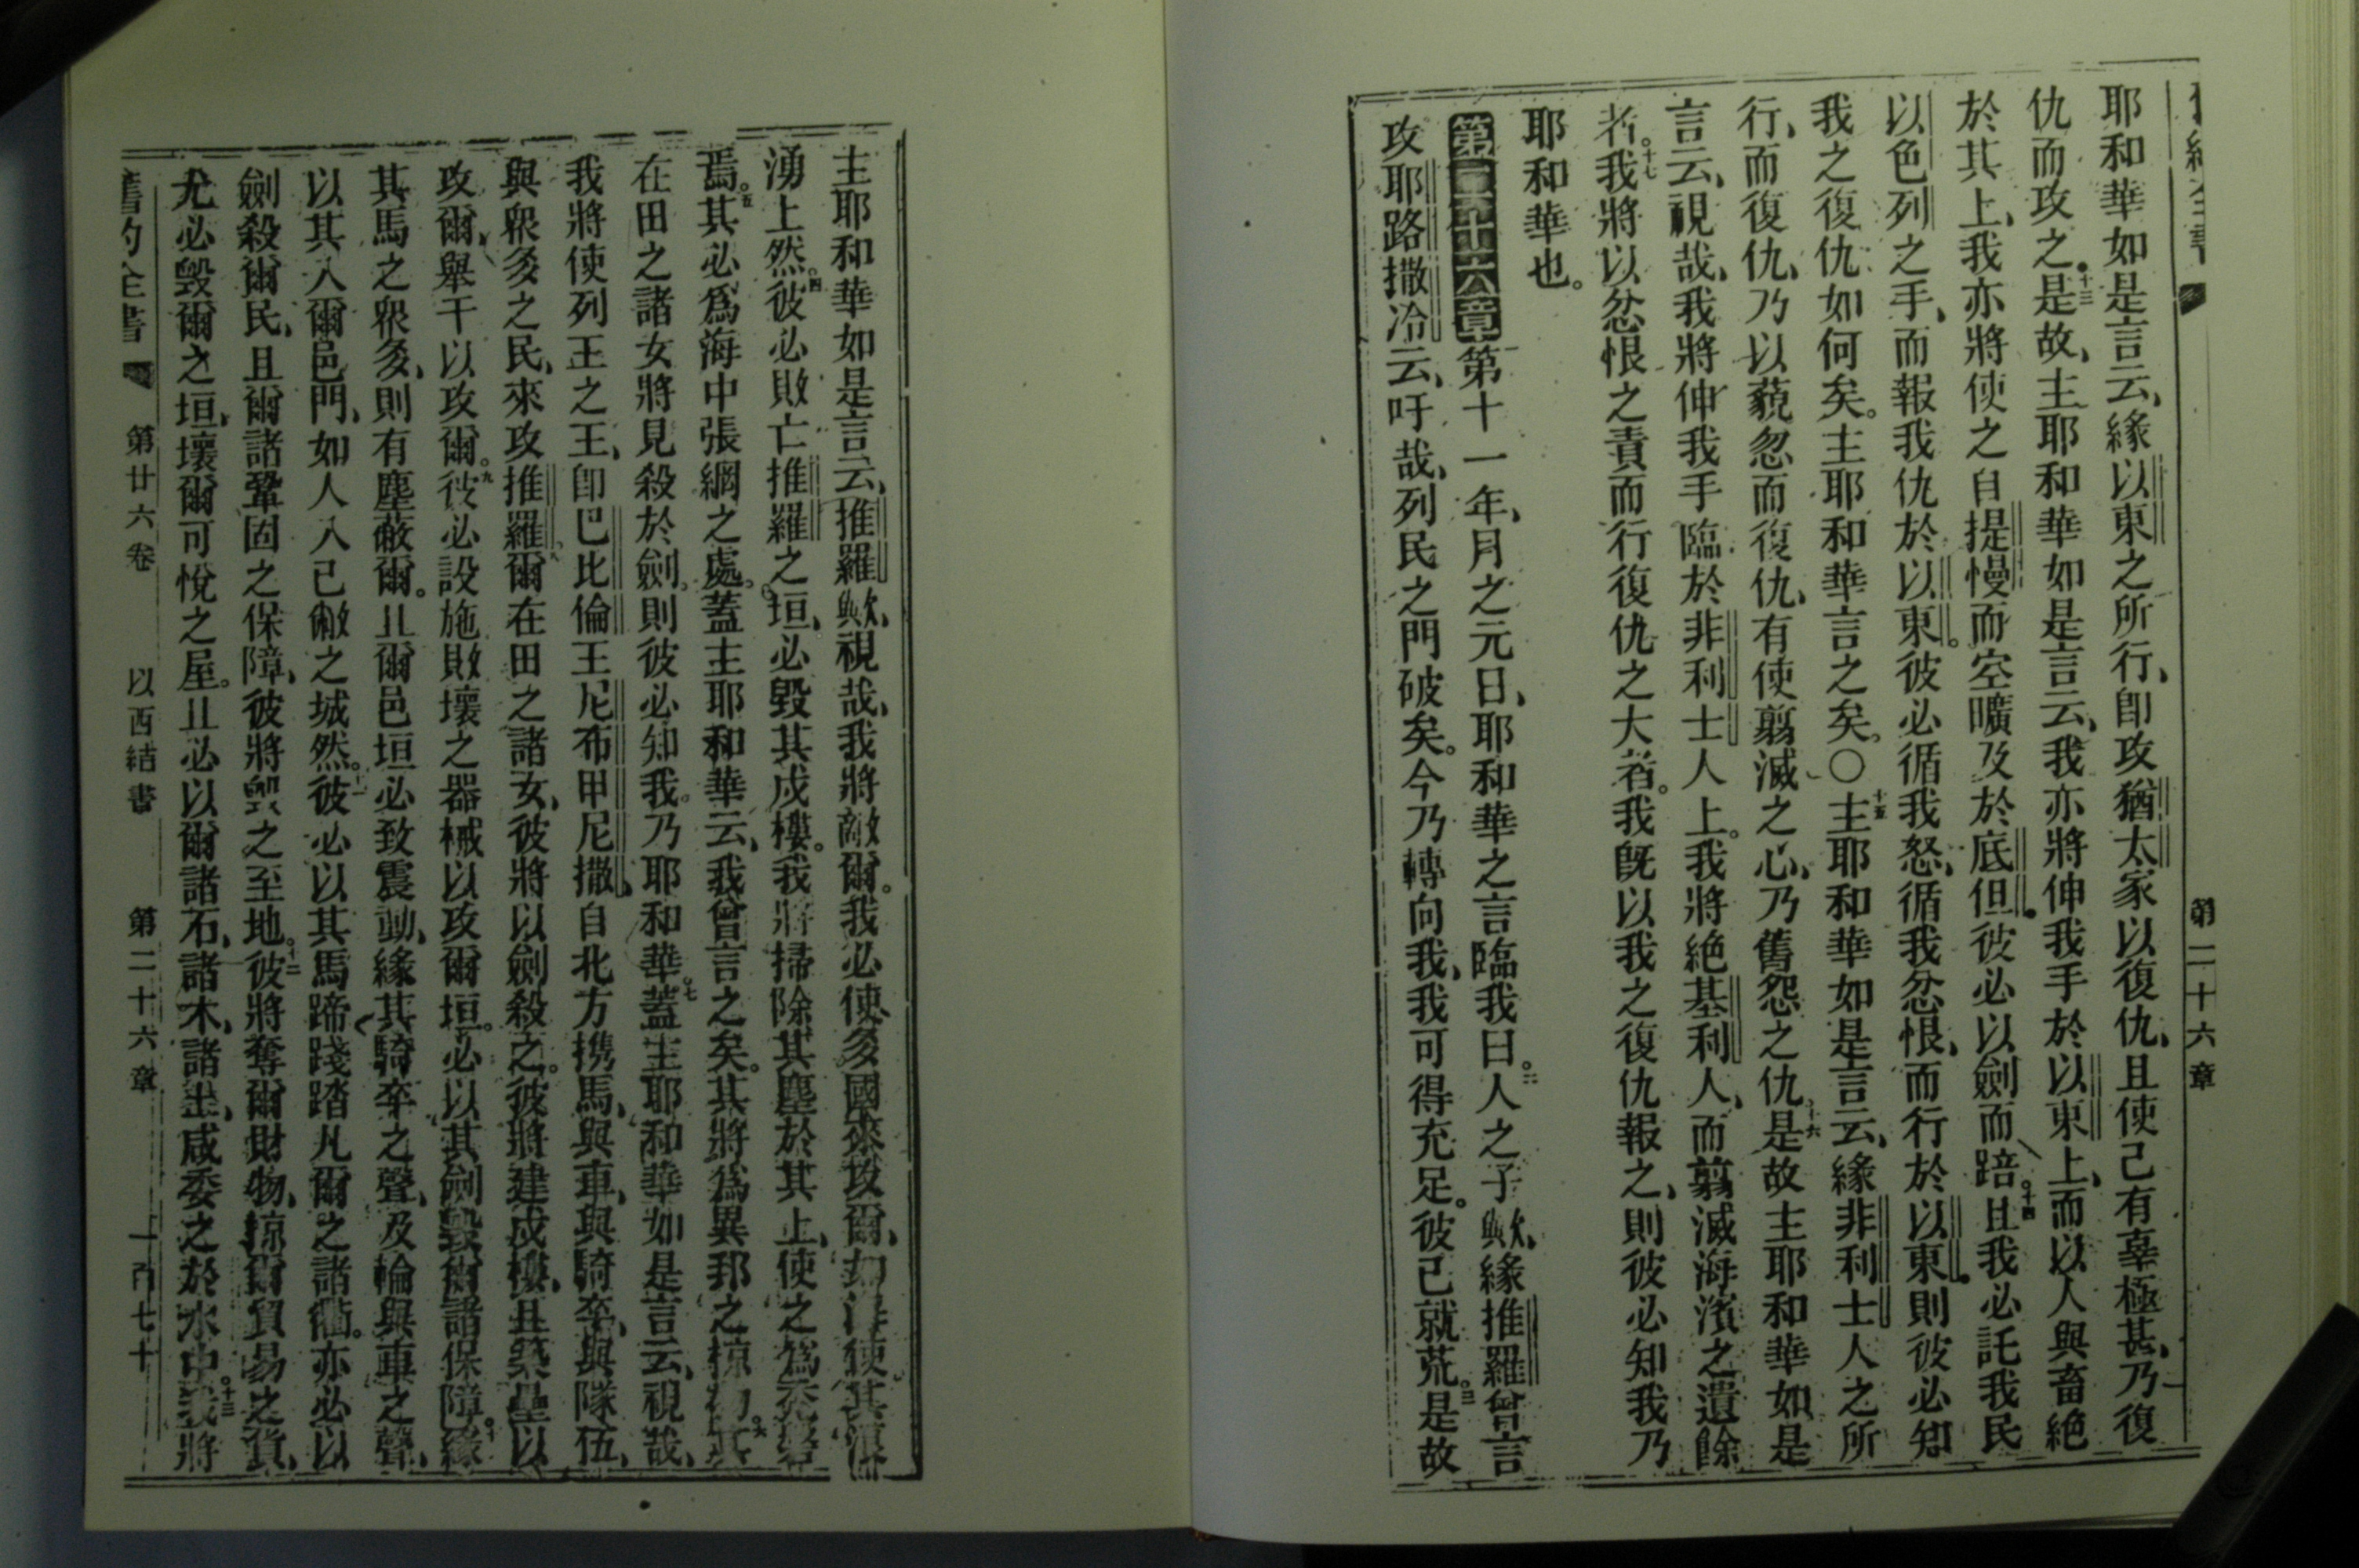 第二十六章
耶和華如是言云、緣以東之所行、卽攻猶太家以復仇、且使己有辜極甚、乃復
仇而攻之。十三是故、主耶和華如是言云、我亦將伸我手於以東上、而以人與畜絕
於其上、我亦將使之自提慢而空曠及於底但。彼必以劍而踣。十四且我必託我民
以色列之手、而報我仇於以東。彼必循我怒、循我忿恨、而行於以東。則彼必知
我之復仇如何矣。主耶和華言之矣。○十五主耶和華如是言云、緣非利士人之所
行、而復仇、乃以藐忽而復仇、有使翦滅之心、乃舊怨之仇。十六是故主耶和華如是
言云、視哉、我將伸我手臨於非利士人上。我將絕基利人、而翦滅海濱之遺餘
者。十七我將以忿恨之責而行復仇之大者。我旣以我之復仇報之、則彼必知我乃
耶和華也。
第二十六章第十一年、月之元日、耶和華之言臨我曰。二人之子歟、緣推羅曾言
攻耶路撒冷云、吁哉、列民之門破矣。今乃轉向我、我可得充足。彼已就荒。三是故
主耶和華如是言云、推羅歟、視哉、我將敵爾。我必使多國來攻爾、如海使其浪
湧上然。四彼必敗亡推羅之垣、必毀其戍樓。我將掃除其塵於其上、使之爲禿磐
焉。五其必爲海中張網之處。蓋主耶和華云、我曾言之矣。其將爲異邦之掠物。六其
在田之諸女將見殺於劍。則彼必知我乃耶和華。七蓋主耶和華如是言云、視哉、
我將使列王之王、卽巴比倫王尼布甲尼撒、自北方携馬、與車、與騎卒、與隊伍、
與衆多之民、來攻推羅。八爾在田之諸女、彼將以劍殺之。彼將建戍樓、且築壘以
攻爾、舉干以攻爾。九彼必設施敗壞之器械以攻爾垣。必以其劍毀爾諸保障。十緣
其馬之衆多、則有塵蔽爾。且爾邑垣必致震動、緣其騎卒之聲、及輪與車之聲、
以其入爾邑門、如人入已敝之城然。十一彼必以其馬蹄踐踏凡爾之諸衢。亦必以
劍殺爾民、且爾諸鞏固之保障、彼將毀之至地。十二彼將奪爾財物、掠爾貿易之貨、
尤必毀爾之垣、壞爾可悅之屋。且必以爾諸石、諸木、諸坭、咸委之於水中。十三我將
舊約全書 第廿六卷 以西結書 第二十六章 一百七十